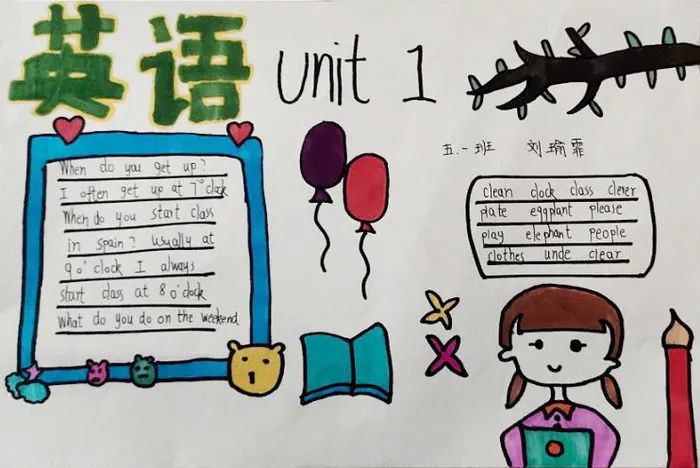 英语 unit 1
五.一班 刘瑜霏
When do you get up?
I often get up at 7 o'clock
When do you start class
in spain? usually at
9 o'clock I always
start class at 8 o'clock
What do you do on the weekend
clean clock class clever
plate eggplant please
play elephant people
clothes unde clear